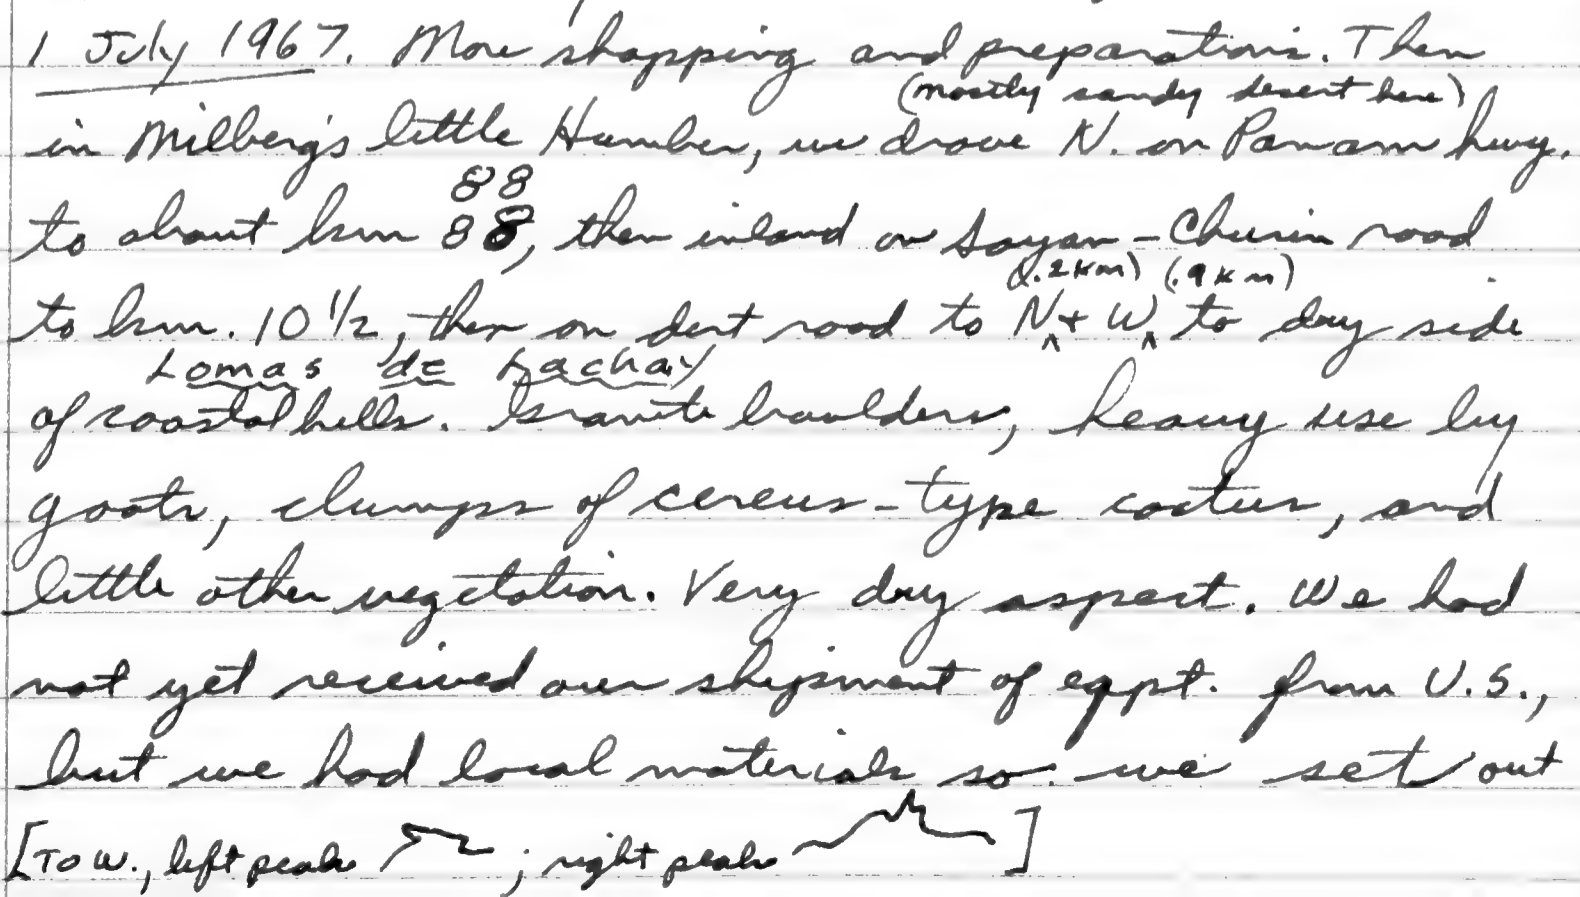 1 July 1967. More shopping and preparations. Then
(mostly sandy desert here)
in Milberg's little Humber, we drove N. on Panam hwy.
88
to about km 88, then inland on Sayan - Churin road
(.2 km) (.9 km)
to km. 10 1/2, then on dirt road to N + W, to dry side
Lomas de Lachay
of coastal hills. Granite boulders, heavy use by
goats, clumps of cereus-type cactus, and
little other vegetation. Very dry aspect. We had
not yet received our shipment of eqpt. from U.S.,
but we had local materials so we set out
[To W., left peak ; right peak ]